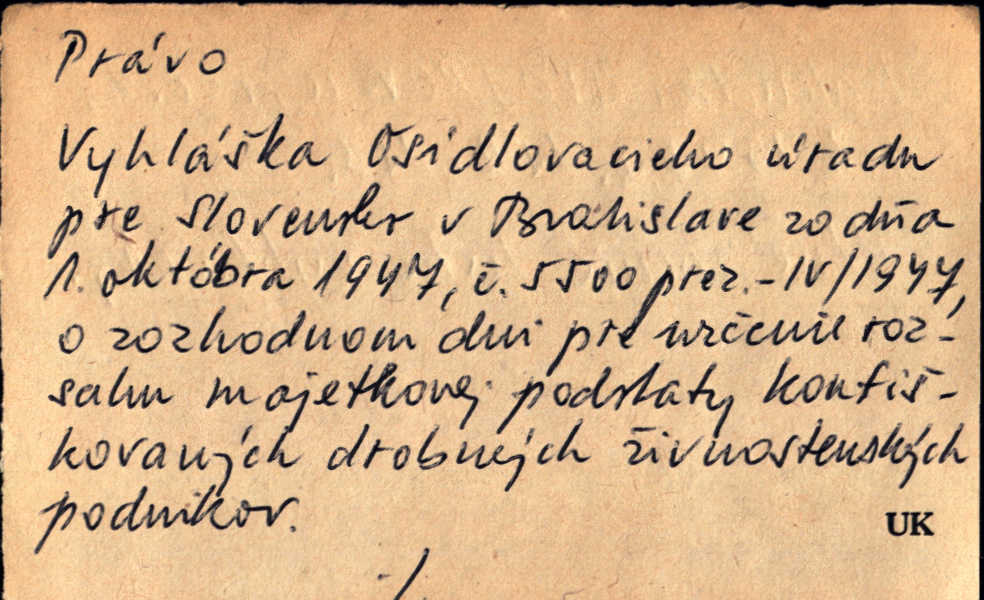 Právo
Vyhláška Osídlovacieho úradu
pre Slovensko v Bratislave zo dňa
1. októbra 1947, č. 5500 prez.-IV/1947,
o rozhodnom dni pre určenie roz-
sahu majetkovej podstaty konfiš-
kovaných drobných živnostenských
podnikov.
UK